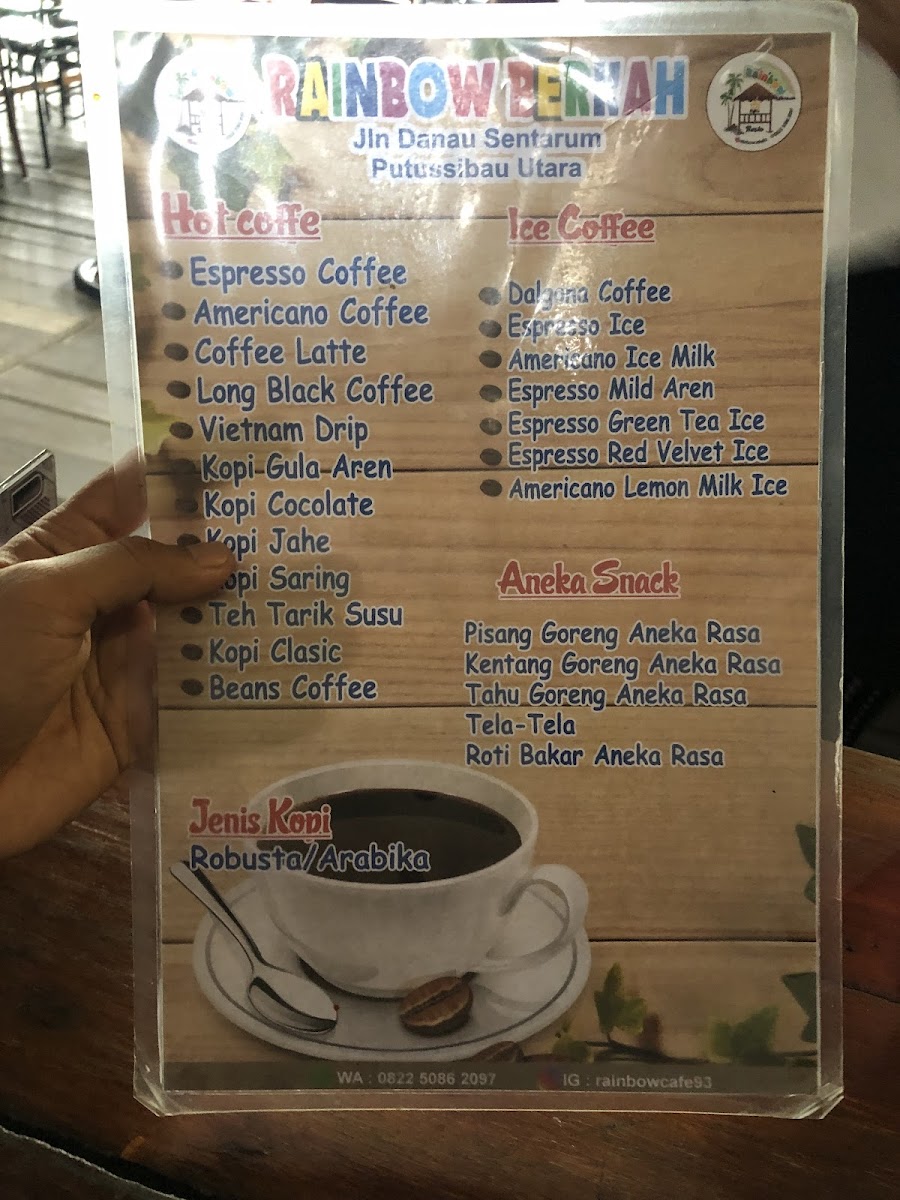 RAINBOW BERKAH
Jln Danau Sentarum
Putussibau Utara
Hot coffe
Espresso Coffee
Americano Coffee
Coffee Latte
Long Black Coffee
Vietnam Drip
Kopi Gula Aren
Kopi Cocolate
Kopi Jahe
Kopi Saring
Teh Tarik Susu
Kopi Clasic
Beans Coffee
Jenis Kopi
Robusta/Arabika
Ice Coffee
Dalgona Coffee
Espresso Ice
Americano Ice Milk
Espresso Mild Aren
Espresso Green Tea Ice
Espresso Red Velvet Ice
Americano Lemon Milk Ice
Aneka Snack
Pisang Goreng Aneka Rasa
Kentang Goreng Aneka Rasa
Tahu Goreng Aneka Rasa
Tela-Tela
Roti Bakar Aneka Rasa
WA : 0822 5086 2097
IG : rainbowcafe93